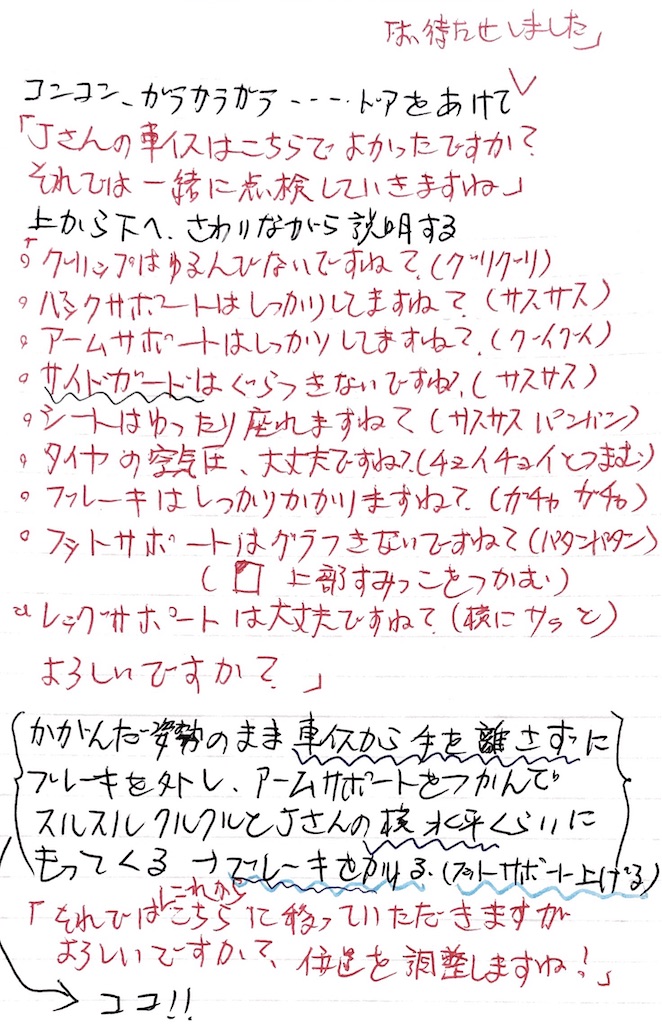 「お待たせしました」
コンコン、ガラガラガラ・・・・ドアをあけて
「Jさんの車イスはこちらでよかったですか？
それでは一緒に点検していきますね」
上から下へ、さわりながら説明する
「。グリップはゆるんでないですね？(グリグリ)
。バックサポートはしっかりしてますね？(サスサス)
。アームサポートはしっかりしてますね？(グイグイ)
。サイドガードはぐらつきないですね？(サスサス)
。シートはゆったり座れますね？(サスサス パンパン)
。タイヤの空気圧、大丈夫ですね？(チョイチョイとつまむ)
。ブレーキはしっかりかかりますね？(ガチャ ガチャ)
。フットサポートはグラつきないですね？(パタンパタン)
(上部すみっこをつかむ)
レッグサポートは大丈夫ですね？(横にサラッと)
よろしいですか？」
かがんだ姿勢のまま車イスから手を離さずに
ブレーキを外し、アームサポートをつかんで
スルスルクルクルとJさんの横 水平くらいに
もってくる →ブレーキをかける。(フットサポート上げる)
にこれから
「それではこちらに移っていただきますが
よろしいですか？、位置を調整しますね！」
→ ココ!!